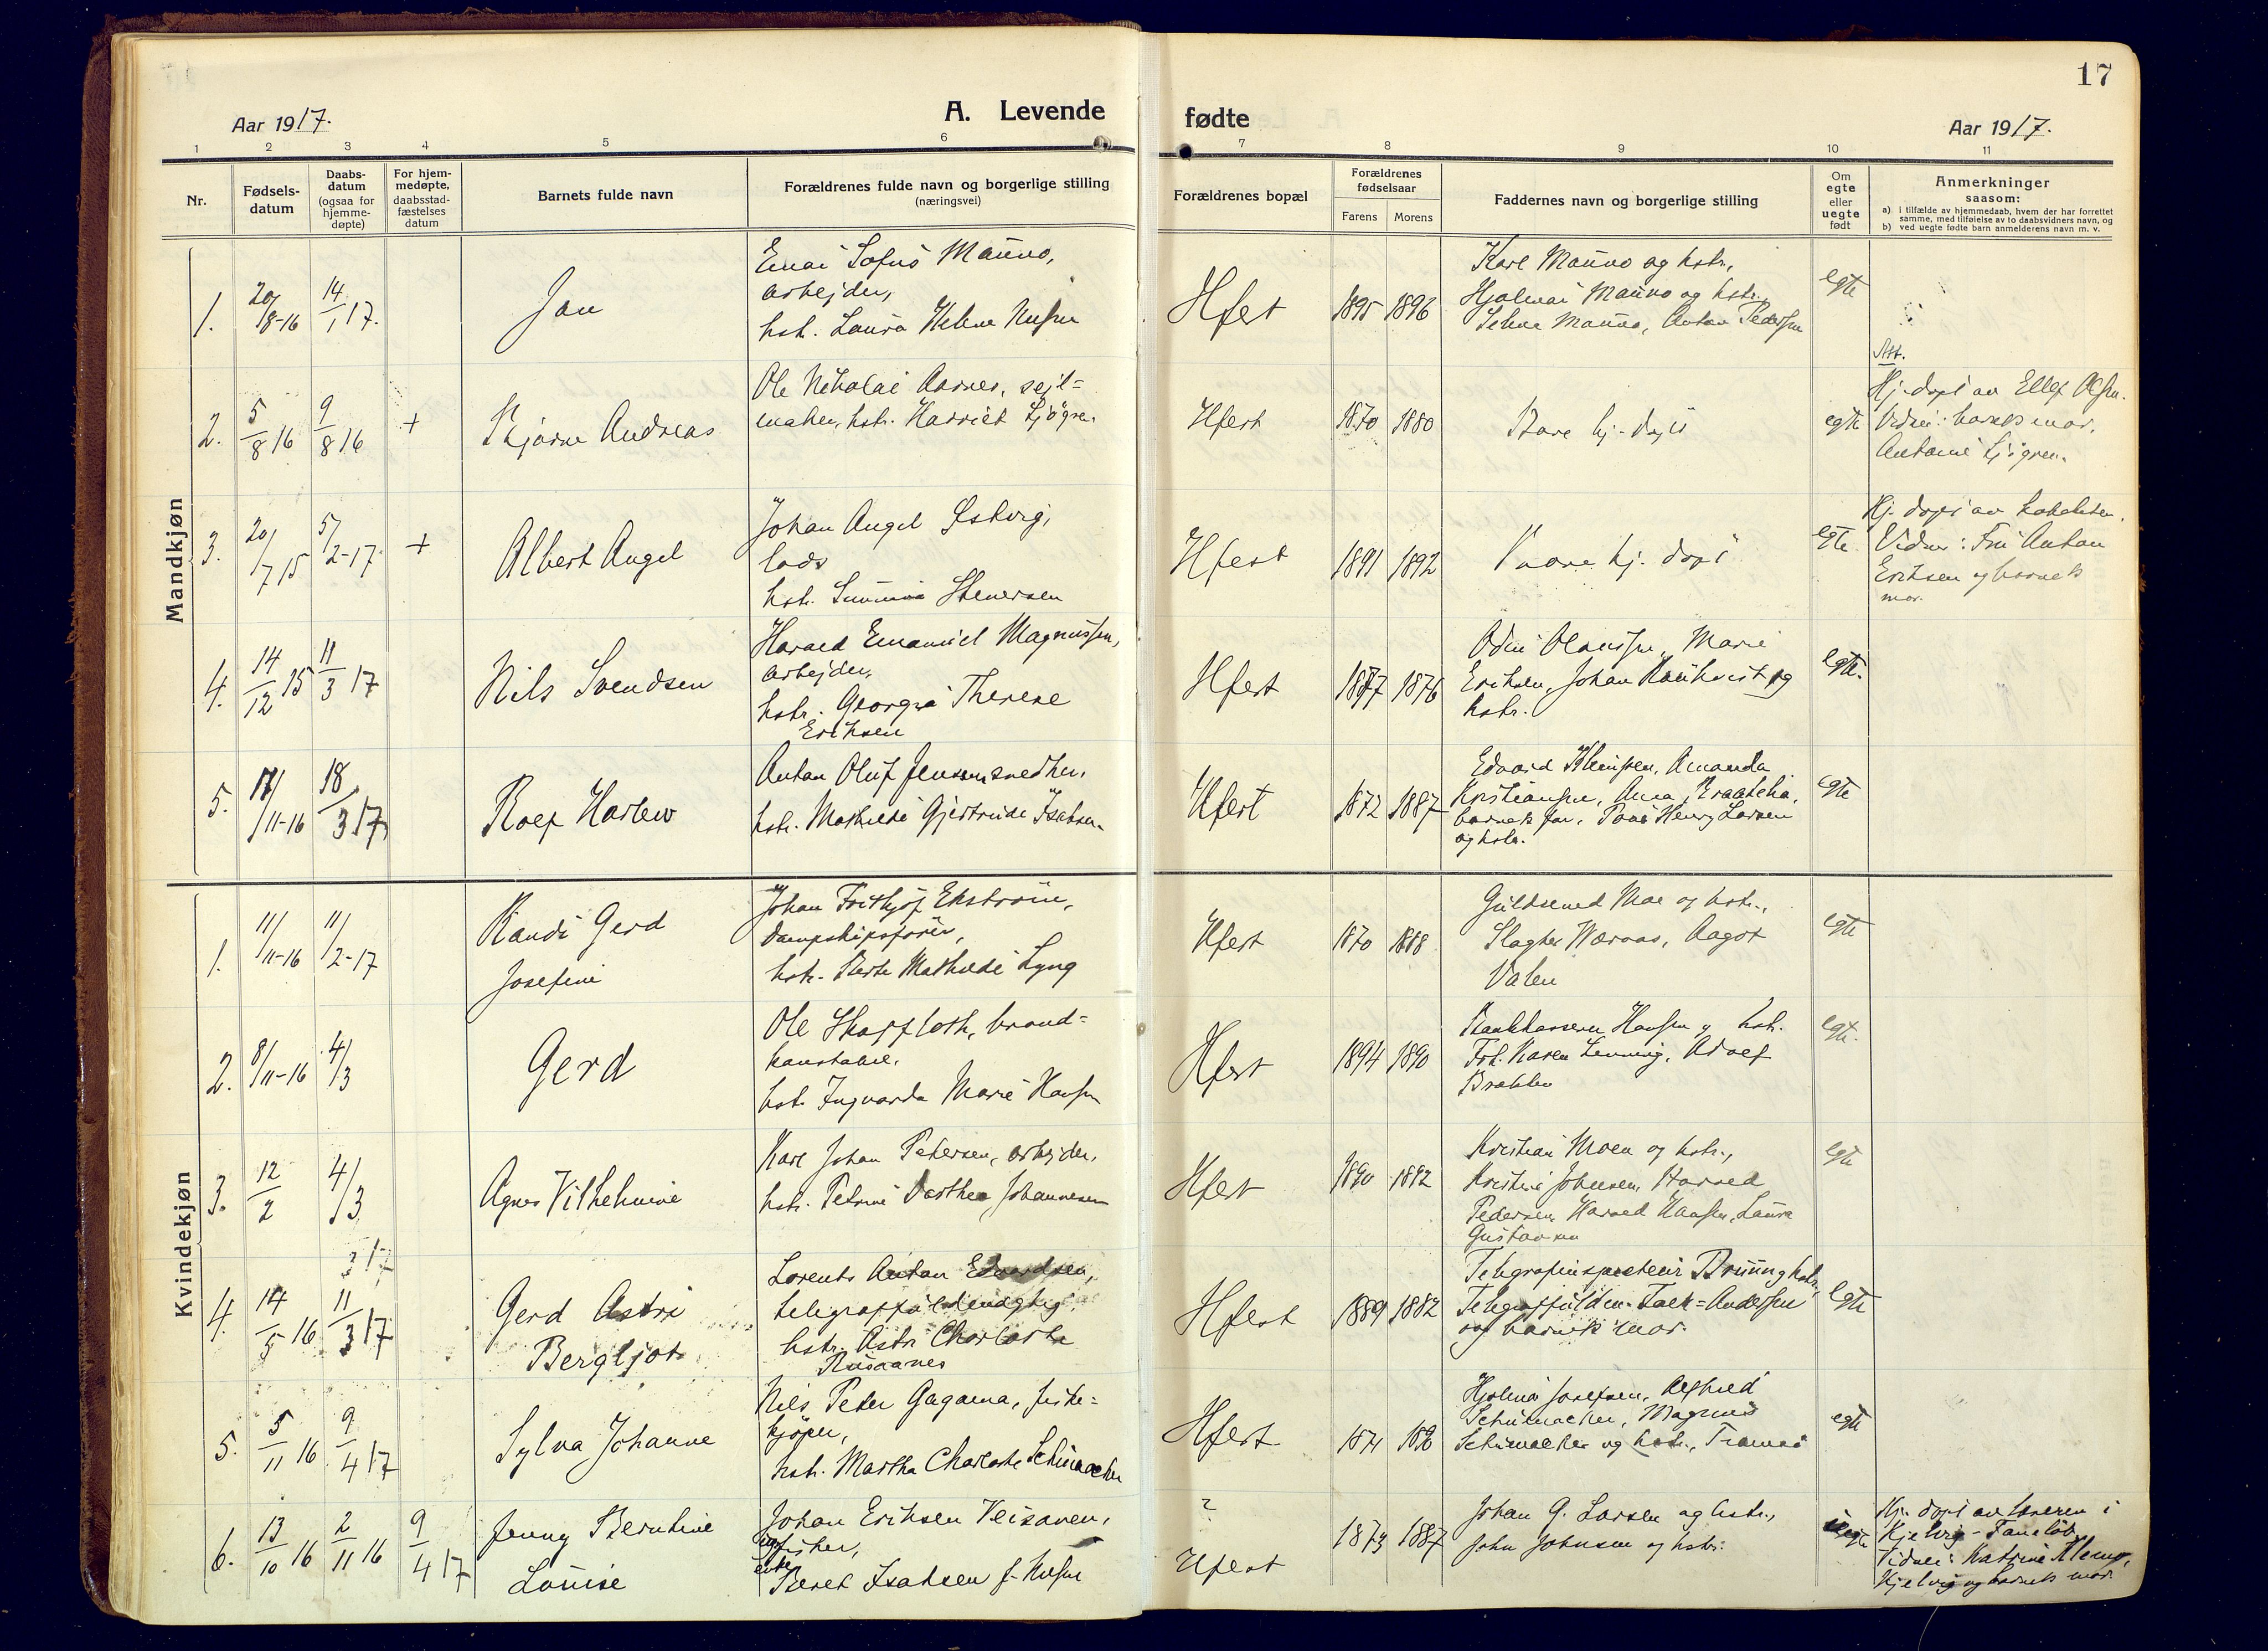 17
Aar 1917.
A. Levende
fødte
Aar 1917.
1 2 3 4 5 6 7 8 9 10 11
Nr.
Fødsels-
datum
Daabs-
datum
(ogsaa for
hjemme-
døpte)
For hjem-
medøpte,
daabsstad-
fæstelses
datum
Barnets fulde navn
Forældrenes fulde navn og borgerlige stilling
(næringsvei)
Forældrenes bopæl
Forældrenes
fødselsaar
Farens Morens
Faddernes navn og borgerlige stilling
Om
egte
eller
uegte
født
Anmerkninger
saasom:
a) i tilfælde av hjemmedaab, hvem der har forrettet
samme, med tilføielse av to daabsvidners navn, og
b) ved uegte fødte barn anmelderens navn m. v.
Mandkjøn
1. 20/8-16 14/1 17.
Jan
Einar Sofus Mauno,
arbejder,
hstr. Laura Helene
Hfest 1895 1896
Karl Mauno og hstr.,
Hjalmar Mauno og hstr.
Mauno, Anton Pedersen
egte
2. 5/8 16 9/8 16 +
Andreas
Ole Nikolai Aarnes, sejl=
maker, hstr. Harriet Sjögren.
Hfest 1870 1880
Bare hj-døpt
egte
Att.
Hj-døpt av Ellef Olsen.
Vidner: barnets mor,
Sjögren.
3. 20/7 15 5/2-17 +
Albert Angel
Johan Angel
lods
hstr. Stenersen
Hfest 1891 1892
hj. døpt
egte
Hj. døpt av
Vidner: Fru Anton
Eriksen og barnets
mor.
4. 14/12 15 11/3 17
Nils Svendsen
Harald Emanuel Magnussen,
arbejder,
hstr. Georgia Therese
Eriksen
Hfest 1877 1876
Odin Olaussen, Marie
Eriksen, Johan og
hstr.
egte.
5. 17/11-16 18/3 17
Rolf Harlew
Anton Oluf Jensen snedker,
hstr. Mathilde Gjertrude Isaksen.
Hfest 1872 1887
Edvard Amanda
Kristiansen, Anna
barnets far, Henry Larsen
og hstr.
egte
Kvindekjøn
1. 11/11-16 11/2-17
Randi Gerd
Josefine
Johan Frithjof Ekstrøm,
dampskipsfører,
hstr. Mathilde Lyng
Hfest 1870 1888
Guldsmed Moe og hstr.,
Slagter Aagot
Valen
egte
2. 8/11-16 4/3
Gerd
Ole Skaffloth, brand=
konstabel,
hstr. Ingvarda Marie Hansen
Hfest 1894 1890
Bankkasserer Hansen og hstr.
Frk. Karen Adolf
Brækken
egte.
3. 12/2 4/3
Agnes Vilhelmine
Karl Johan Petersen, arbejder,
hstr. Petrine Dorthea Johannesen
Hfest 1890 1892
Kristian Moen og hstr.,
Kristine Johnsen, Harald
Pedersen, Harald Hansen, Laura
Gustavsen
egte
3 17
4. 14/5 16 11/3 17
Gerd Astri
Bergljot
Lorents Anton Edvardsen,
telegraffuldmægtig,
hstr. Astri Charlotte
Hfest 1889 1882
Telegrafinspektør Bruun og hstr,
Telegraffuldm. Falck=Andersen
og barnets mor.
egte
5. 5/11 16 9/4 17
Sylva Johanne
Nils Peder Gagama, fiske=
kjøper,
hstr. Martha Charlotte Schumacker
Hfest
Hjalmar Josefsen, Alfhild
Schumacker, Magnus
Schumacker og hstr., Tromsø
egte
6. 13/10 16 2/11 16 9/4 17
Jenny Berntine
Louise
Johan Eriksen Veisanen,
fisker,
Beret Isaksen f.
?
Hfest
1873 1887
Johan G. Larsen og hstr.,
John Johnsen og hstr.
uegte
Hj. døpt av læreren i
Kjelvig-
Vidner: Katrine
Kjelvig og barnets mor.